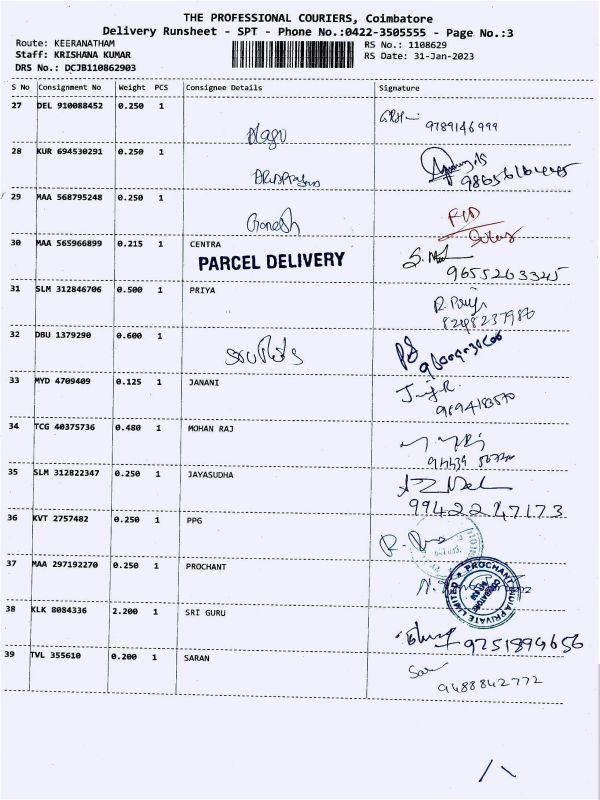 THE PROFESSIONAL COURIERS, Coimbatore
Delivery Runsheet - SPT - Phone No.:0422-3505555 - Page No.:3
Route: KEERANATHAM
RS No.: 1108629
Staff: KRISHANA KUMAR
RS Date: 31-Jan-2023
DRS No.: DCJB110862903
S No Consignment No Weight PCS Consignee Details Signature
27 DEL 910088452 0.250 1
9789146999
28 KUR 694530291 0.250 1
29 MAA 568795248 0.250 1 Ganesh
30 MAA 565966899 0.215 1 CENTRA
PARCEL DELIVERY
9655263345
31 SLM 312846706 0.500 1 PRIYA
8248237980
32 DBU 1379290 0.600 1
33 MYD 4709409 0.125 1 JANANI
9694183570
34 TCG 40375736 0.480 1 MOHAN RAJ
35 SLM 312822347 0.250 1 JAYASUDHA
9942247173
36 KVT 2757482 0.250 1 PPG
37 MAA 297192270 0.250 1 PROCHANT
PROCHANT INDIA PRIVATE LIMITED
38 KLK 8084336 2.200 1 SRI GURU
9751894656
39 TVL 355610 0.200 1 SARAN
9488842772